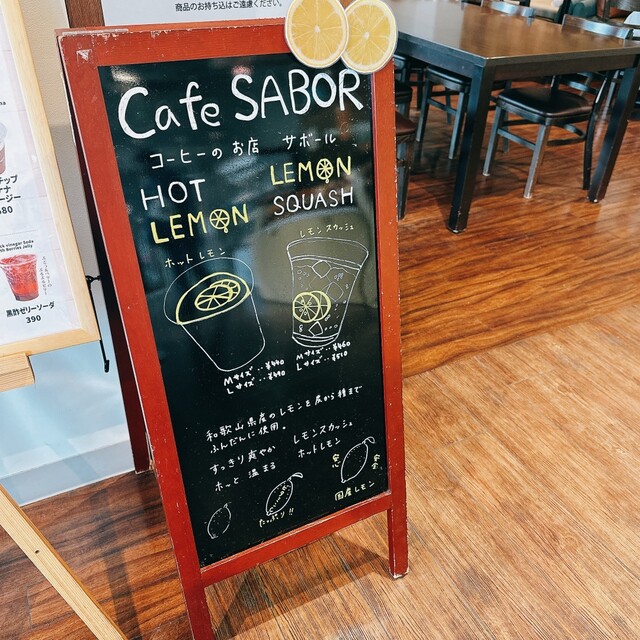 商品のお持ち込はご遠慮ください。
Cafe SABOR
コーヒーのお店 サボール
HOT
LEMON
LEMON
SQUASH
ホットレモン
Mサイズ‥¥440
Lサイズ‥¥490
レモンスカッシュ
Mサイズ‥¥460
Lサイズ‥¥510
和歌山県産のレモンを皮から種まで
ふんだんに使用。
すっきり爽やか レモンスカッシュ
ホッと 温まる ホットレモン
たっぷり!!
安心 安全
国産レモン
チップ
ナナ
ージー
黒酢ゼリーソーダ
390